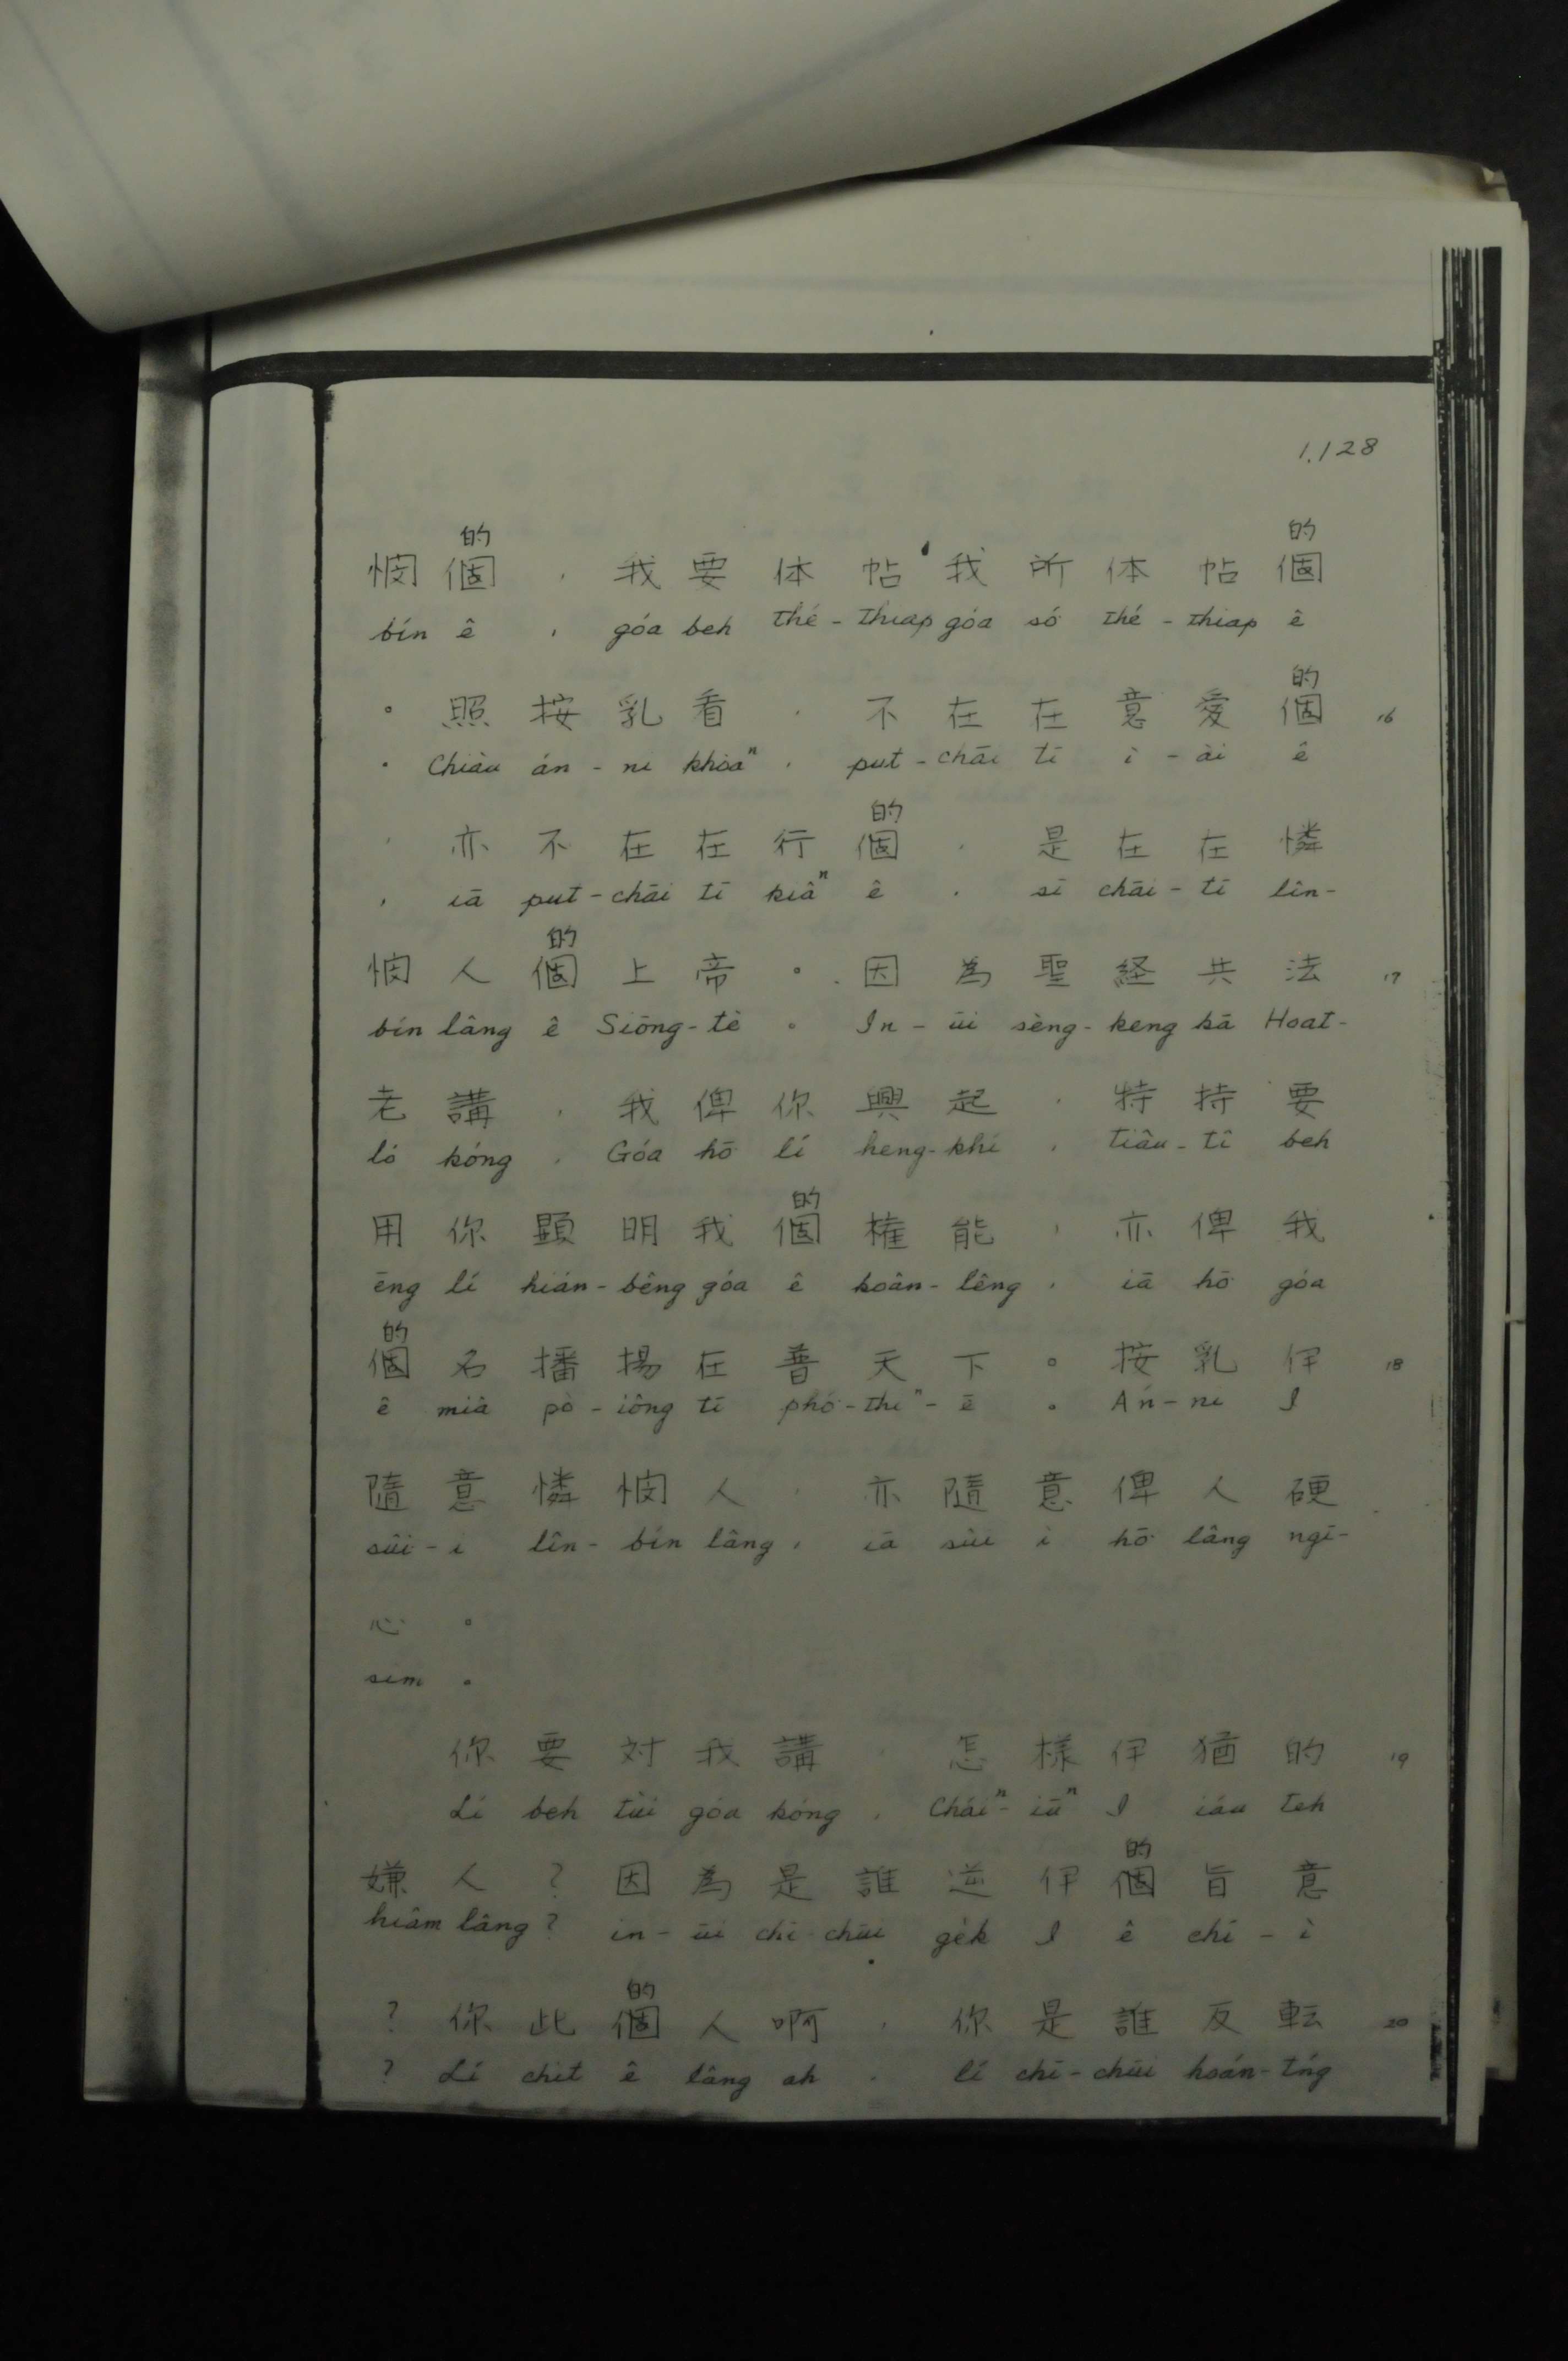 1.128
的 的
悯個，我要体帖我所体帖個
bín ê , góa beh thé-thiap góa só thé-thiap ê
的
。照按乳看，不在在意愛個 16
. Chiàu án-ni khòaⁿ, put-chāi tī ì-ài ê
的
，亦不在在行個，是在在憐
, iā put-chāi tī kiâⁿ ê , sī chāi-tī lîn-
的
悯人個上帝。因為聖経共法 17
bín lâng ê Siōng-tè 。 In-ūi sèng-keng kā Hoat-
老講，我俾你興起，特持要
ló kóng , Góa hō lí heng-khí , tiâu-tî beh
的
用你顕明我個権能，亦俾我
ēng lí hián-bêng góa ê koân-lêng , iā hō góa
的
個名播揚在普天下。按乳伊 18
ê miâ pò-iông tī phó-thiⁿ-ē 。 Án-ni I
隨意憐悯人，亦隨意俾人硬
sûi-ì lîn-bín lâng , iā sûi ì hō lâng ngī-
心。
sim 。
你要対我講，怎樣伊猶的 19
Lí beh tùi góa kóng , Cháiⁿ-iūⁿ I iáu teh
的
嫌人？因為是誰逆伊個旨意
hiâm lâng? in-ūi chī-chūi ge̍k I ê chí-ì
的
？你此個人啊，你是誰反転 20
? Lí chit ê lâng ah , lí chī-chūi hoán-tńg